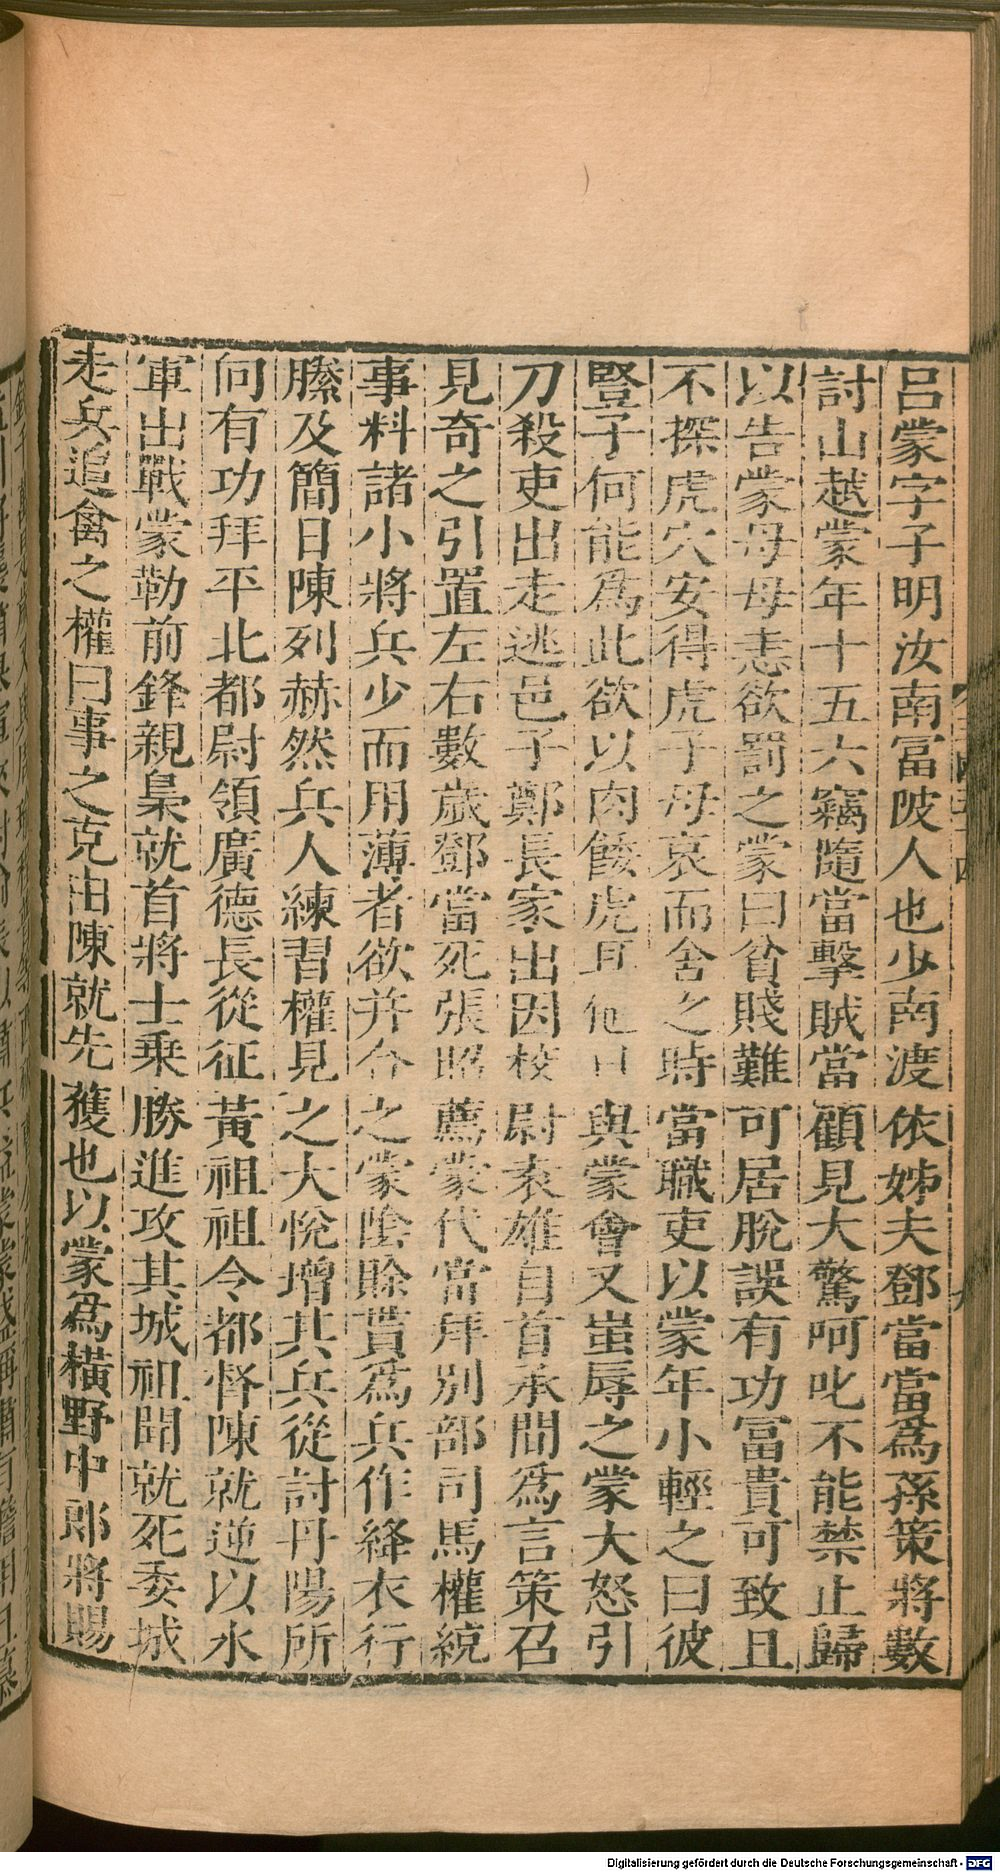 呂蒙字子明汝南富陂人也少南渡依姊夫鄧當當爲孫策將數
討山越蒙年十五六竊隨當擊賊當顧見大驚呵叱不能禁止歸
以告蒙母母恚欲罰之蒙曰貧賤難可居脫誤有功富貴可致且
不探虎穴安得虎子母哀而舍之時當職吏以蒙年小輕之曰彼
豎子何能爲此欲以肉餧虎耳他日與蒙會又蚩辱之蒙大怒引
刀殺吏出走逃邑子鄭長家出因校尉袁雄自首承間爲言策召
見奇之引置左右數歲鄧當死張昭薦蒙代當拜別部司馬權統
事料諸小將兵少而用薄者欲并合之蒙陰賒貰爲兵作絳衣行
縢及簡日陳列赫然兵人練習權見之大悅增其兵從討丹陽所
向有功拜平北都尉領廣德長從征黃祖祖令都督陳就逆以水
軍出戰蒙勒前鋒親梟就首將士乗勝進攻其城祖聞就死委城
走兵追禽之權曰事之克由陳就先獲也以蒙爲橫野中郎將賜
Digitalisierung gefördert durch die Deutsche Forschungsgemeinschaft - DFG